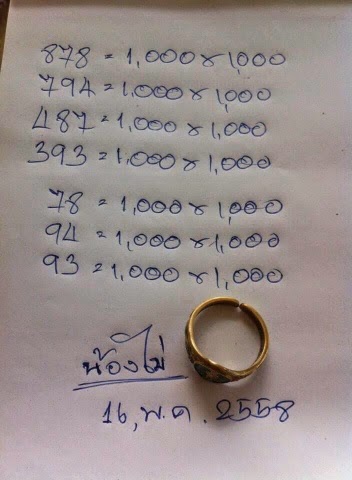 878 = 1,000 x 1,000
794 = 1,000 x 1,000
487 = 1,000 x 1,000
393 = 1,000 x 1,000
78 = 1,000 x 1,000
94 = 1,000 x 1,000
93 = 1,000 x 1,000
น้องไม่
16, พ.ค. 2558